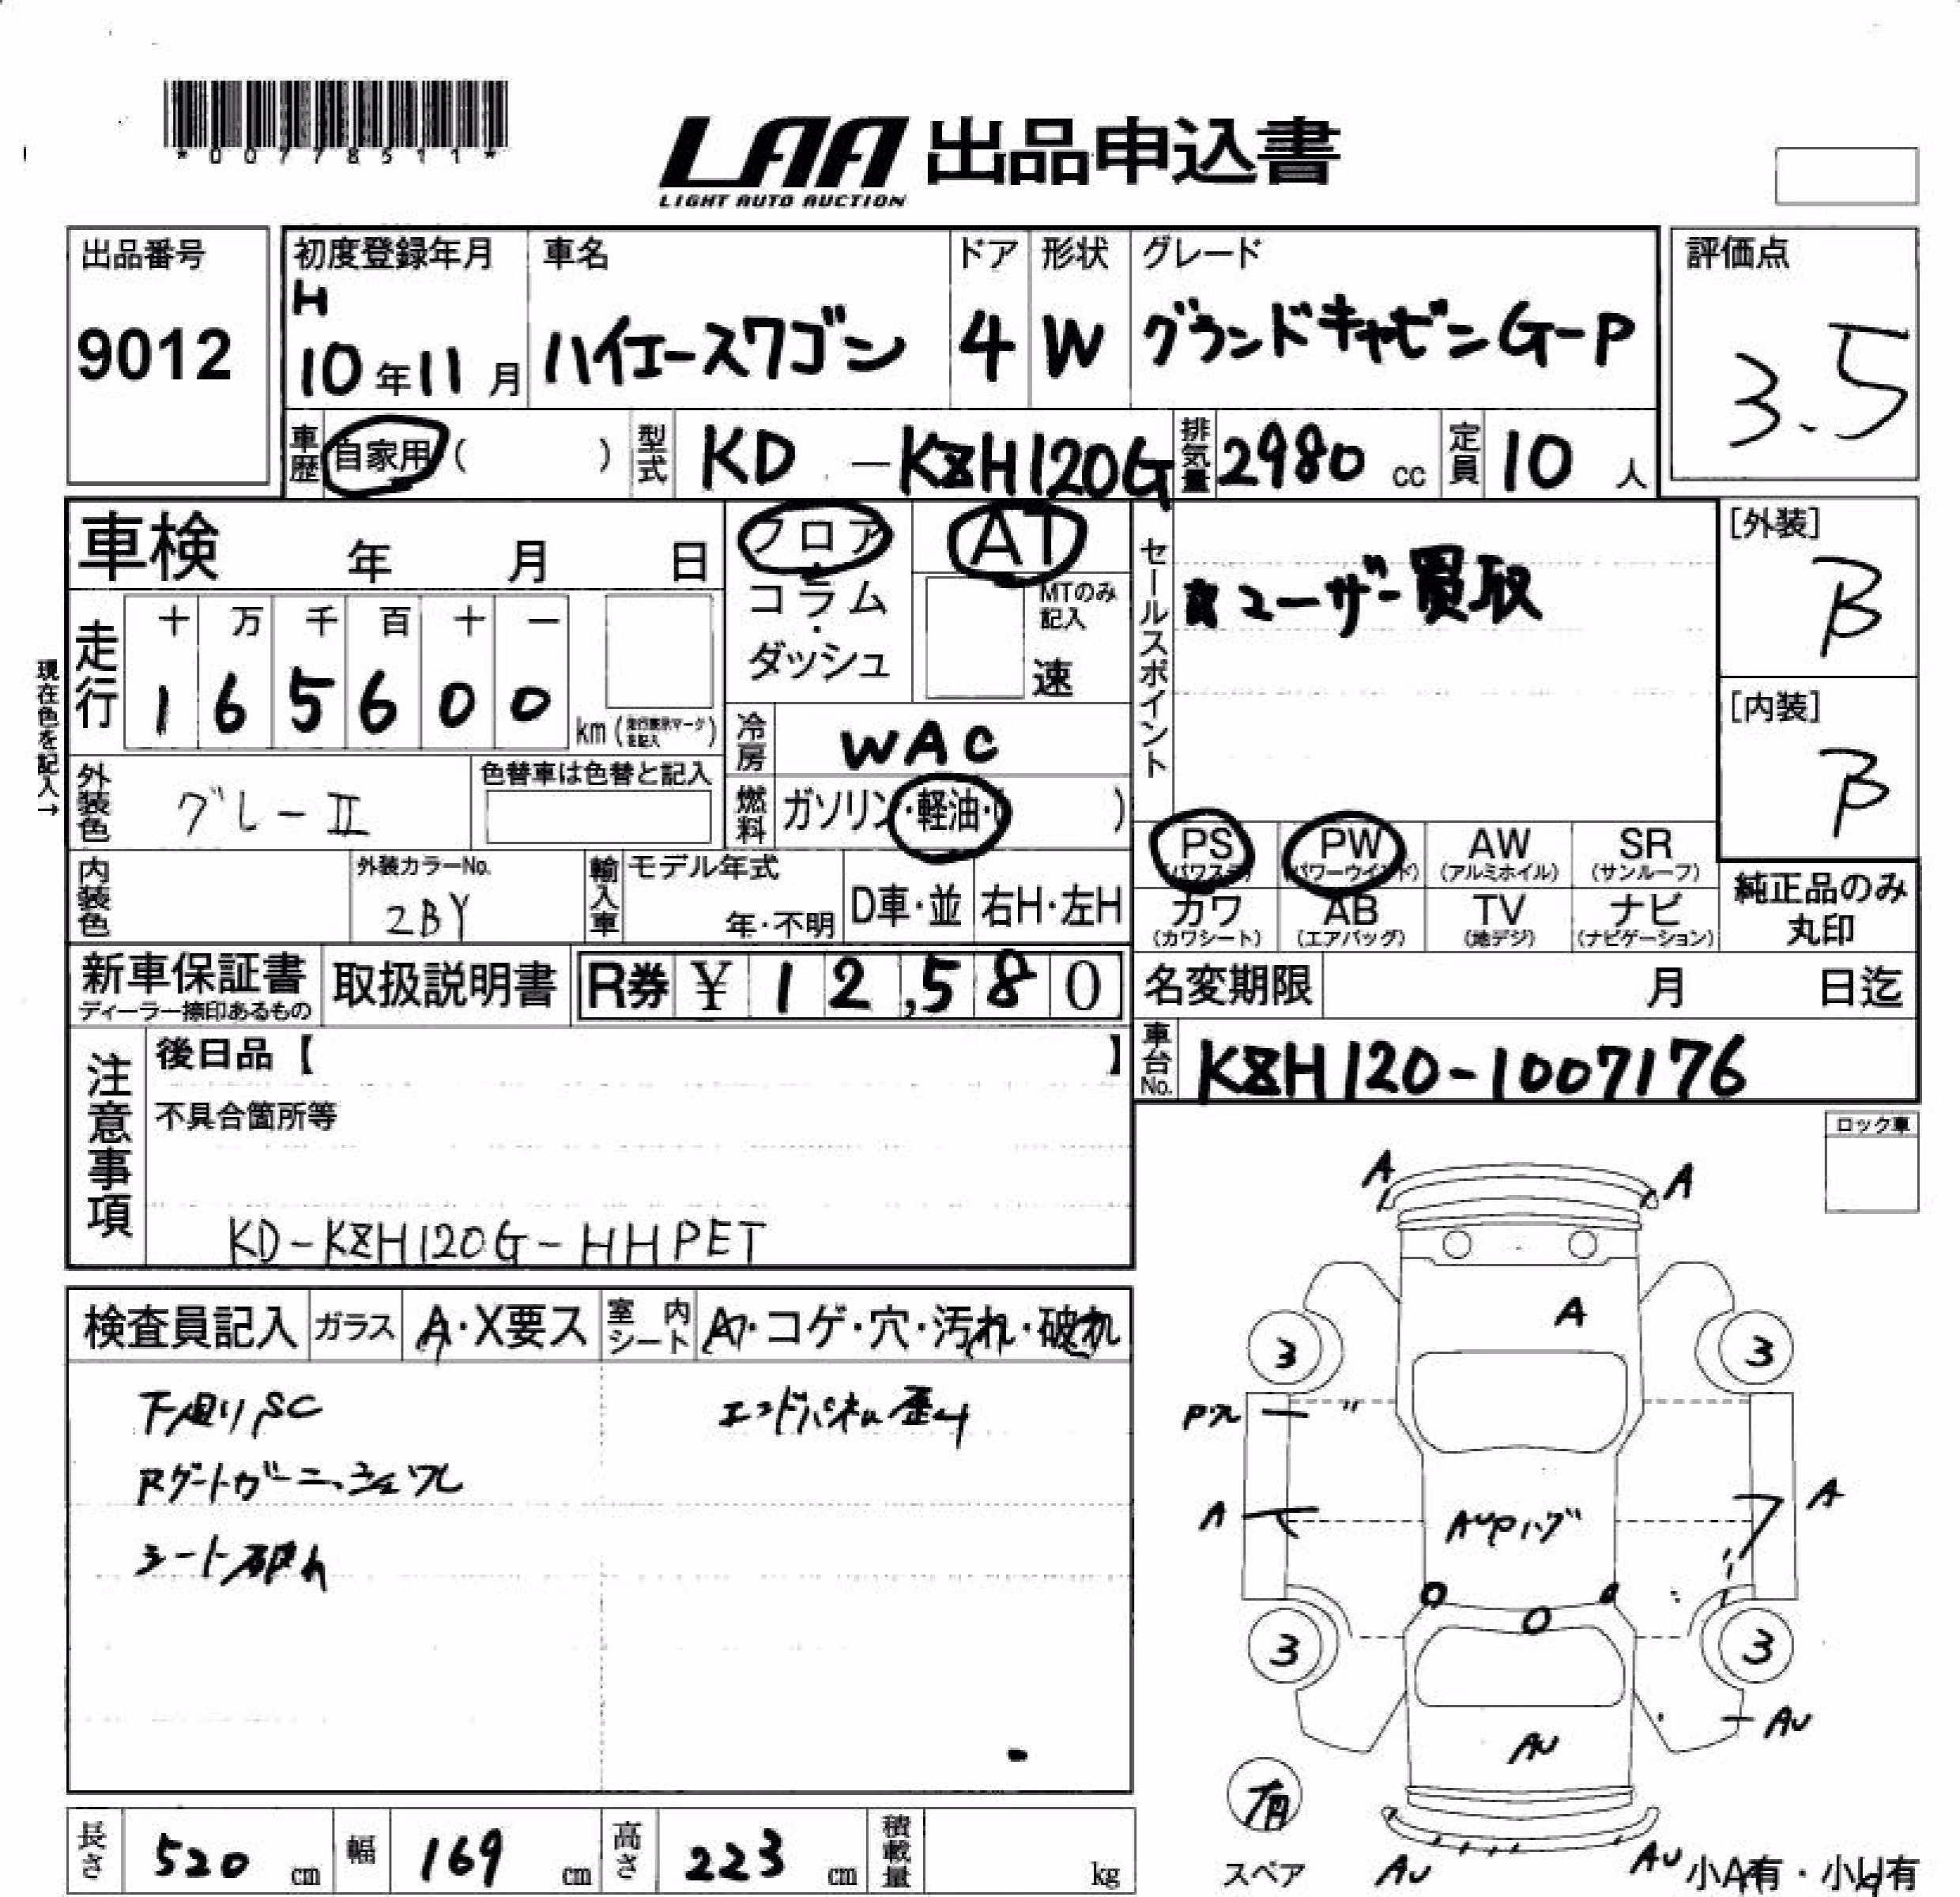 *00778511*
LAA 出品申込書
LIGHT AUTO AUCTION
出品番号
9012
初度登録年月
H
10年11月
車名
ハイエースワゴン
ドア
4
形状
W
グレード
グランドキャビンG-P
評価点
3.5
車歴 自家用( )
型式 KD -KZH120G
排気量 2980 cc
定員 10 人
車検 年 月 日
フロア
コラム
・
ダッシュ
AT
MTのみ
記入
速
セールスポイント
ユーザー買取
[外装]
B
[内装]
B
現在色を記入→
走行
十 万 千 百 十 一
1 6 5 6 0 0
km(
冷房 WAC
燃料 ガソリン・軽油・( )
外装色 グレーII
色替車は色替と記入
内装色
外装カラーNo.
2BY
輸入車
モデル年式
年・不明
D車・並
右H・左H
PS AW SR
PW
(パワステ) (パワーウインド) (アルミホイル) (サンルーフ)
カワ AB TV ナビ
(カワシート) (エアバッグ) (地デジ) (ナビゲーション)
純正品のみ
丸印
新車保証書
ディーラー捺印あるもの
取扱説明書
R券 ¥ 12,580
名変期限 月 日迄
車台No. KZH120-1007176
注意事項
後日品【 】
不具合箇所等
KD-KZH120G-HHPET
ロック車
検査員記入
ガラス A・X要ス
室内シート
コゲ・穴・汚れ・破れ
下廻りSC
エンドパネル歪み
シート破れ
A A
A
3 3
A A
3 3
AU
AU
有
スペア
AU
AU
小A有・小U有
長さ 520 cm
幅 169 cm
高さ 223 cm
積載量 kg